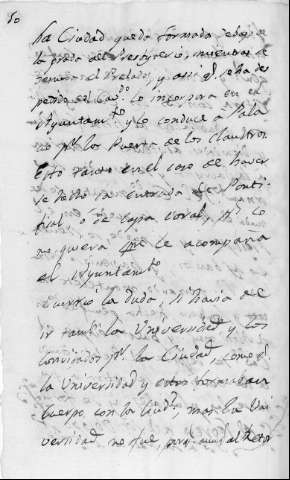 50
La Ciudad queda formada debajo
la grada del Presbyterio, mientras se
el Prelado, y assi q.e se ha des
pedido del Cav.do lo incorpora en el
Ayuntam.to y lo conduce a Pala
cio p.r la Puerta de los Claustros
Esto tanto en el caso de haver
se hecho la entrada de Ponti-
fical o de capa coral, p.r lo
ne quiera que le acompaña
el Ayuntam.to
Ocurrió la duda, si havia de
ir tamb.n la Universidad y los
convidados p.r la Ciudad, como q.e
la Universidad y estos formaban
cuerpo con la Ciud.d, mas la Uni
versidad no fue, para